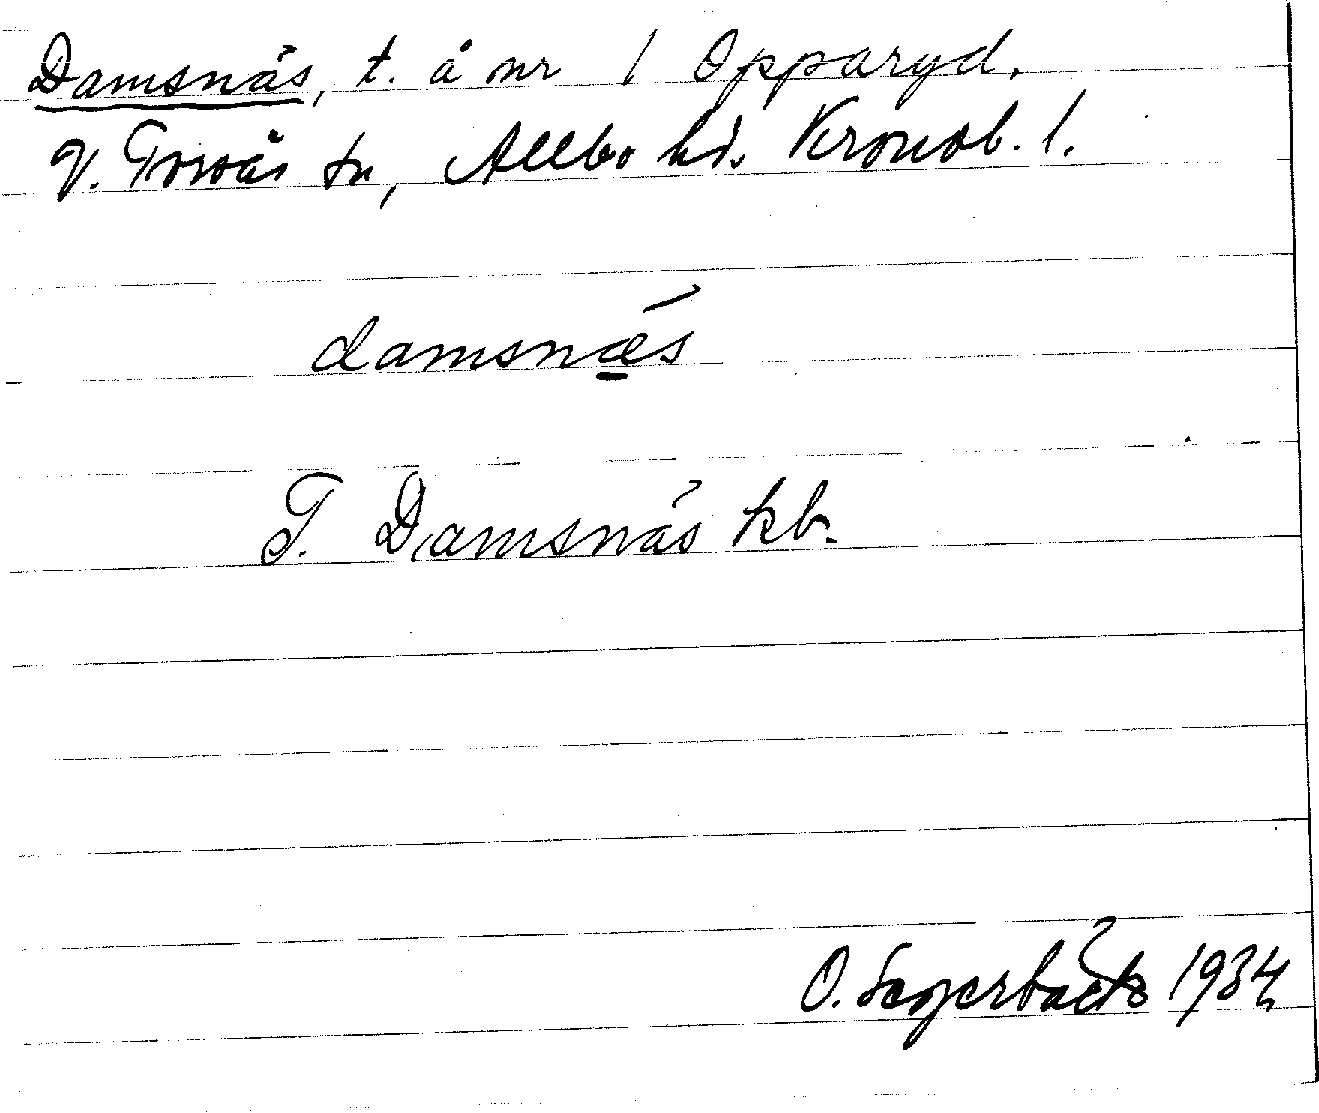 Damsnäs, t. å nr 1 Opparyd.
V. Torsås sn, Allbo hd. Kronob. l.
damsnǽ̱s
T. Damsnäs kb.
O. 1934